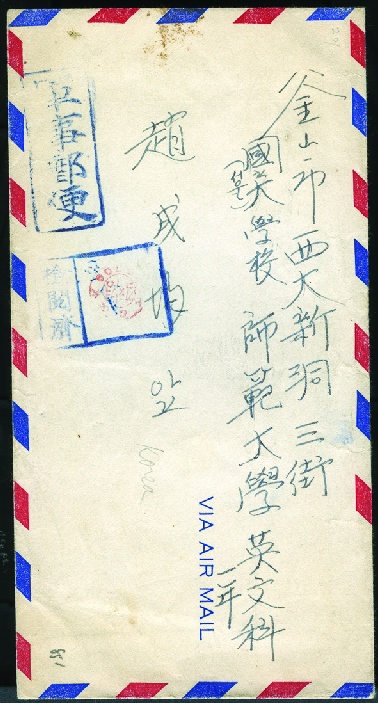 釜山市 西大新洞 三街
國 學校 師範大學 英文科
一年
趙成均 앞
軍事郵便
檢閱濟
Korea
VIA AIR MAIL